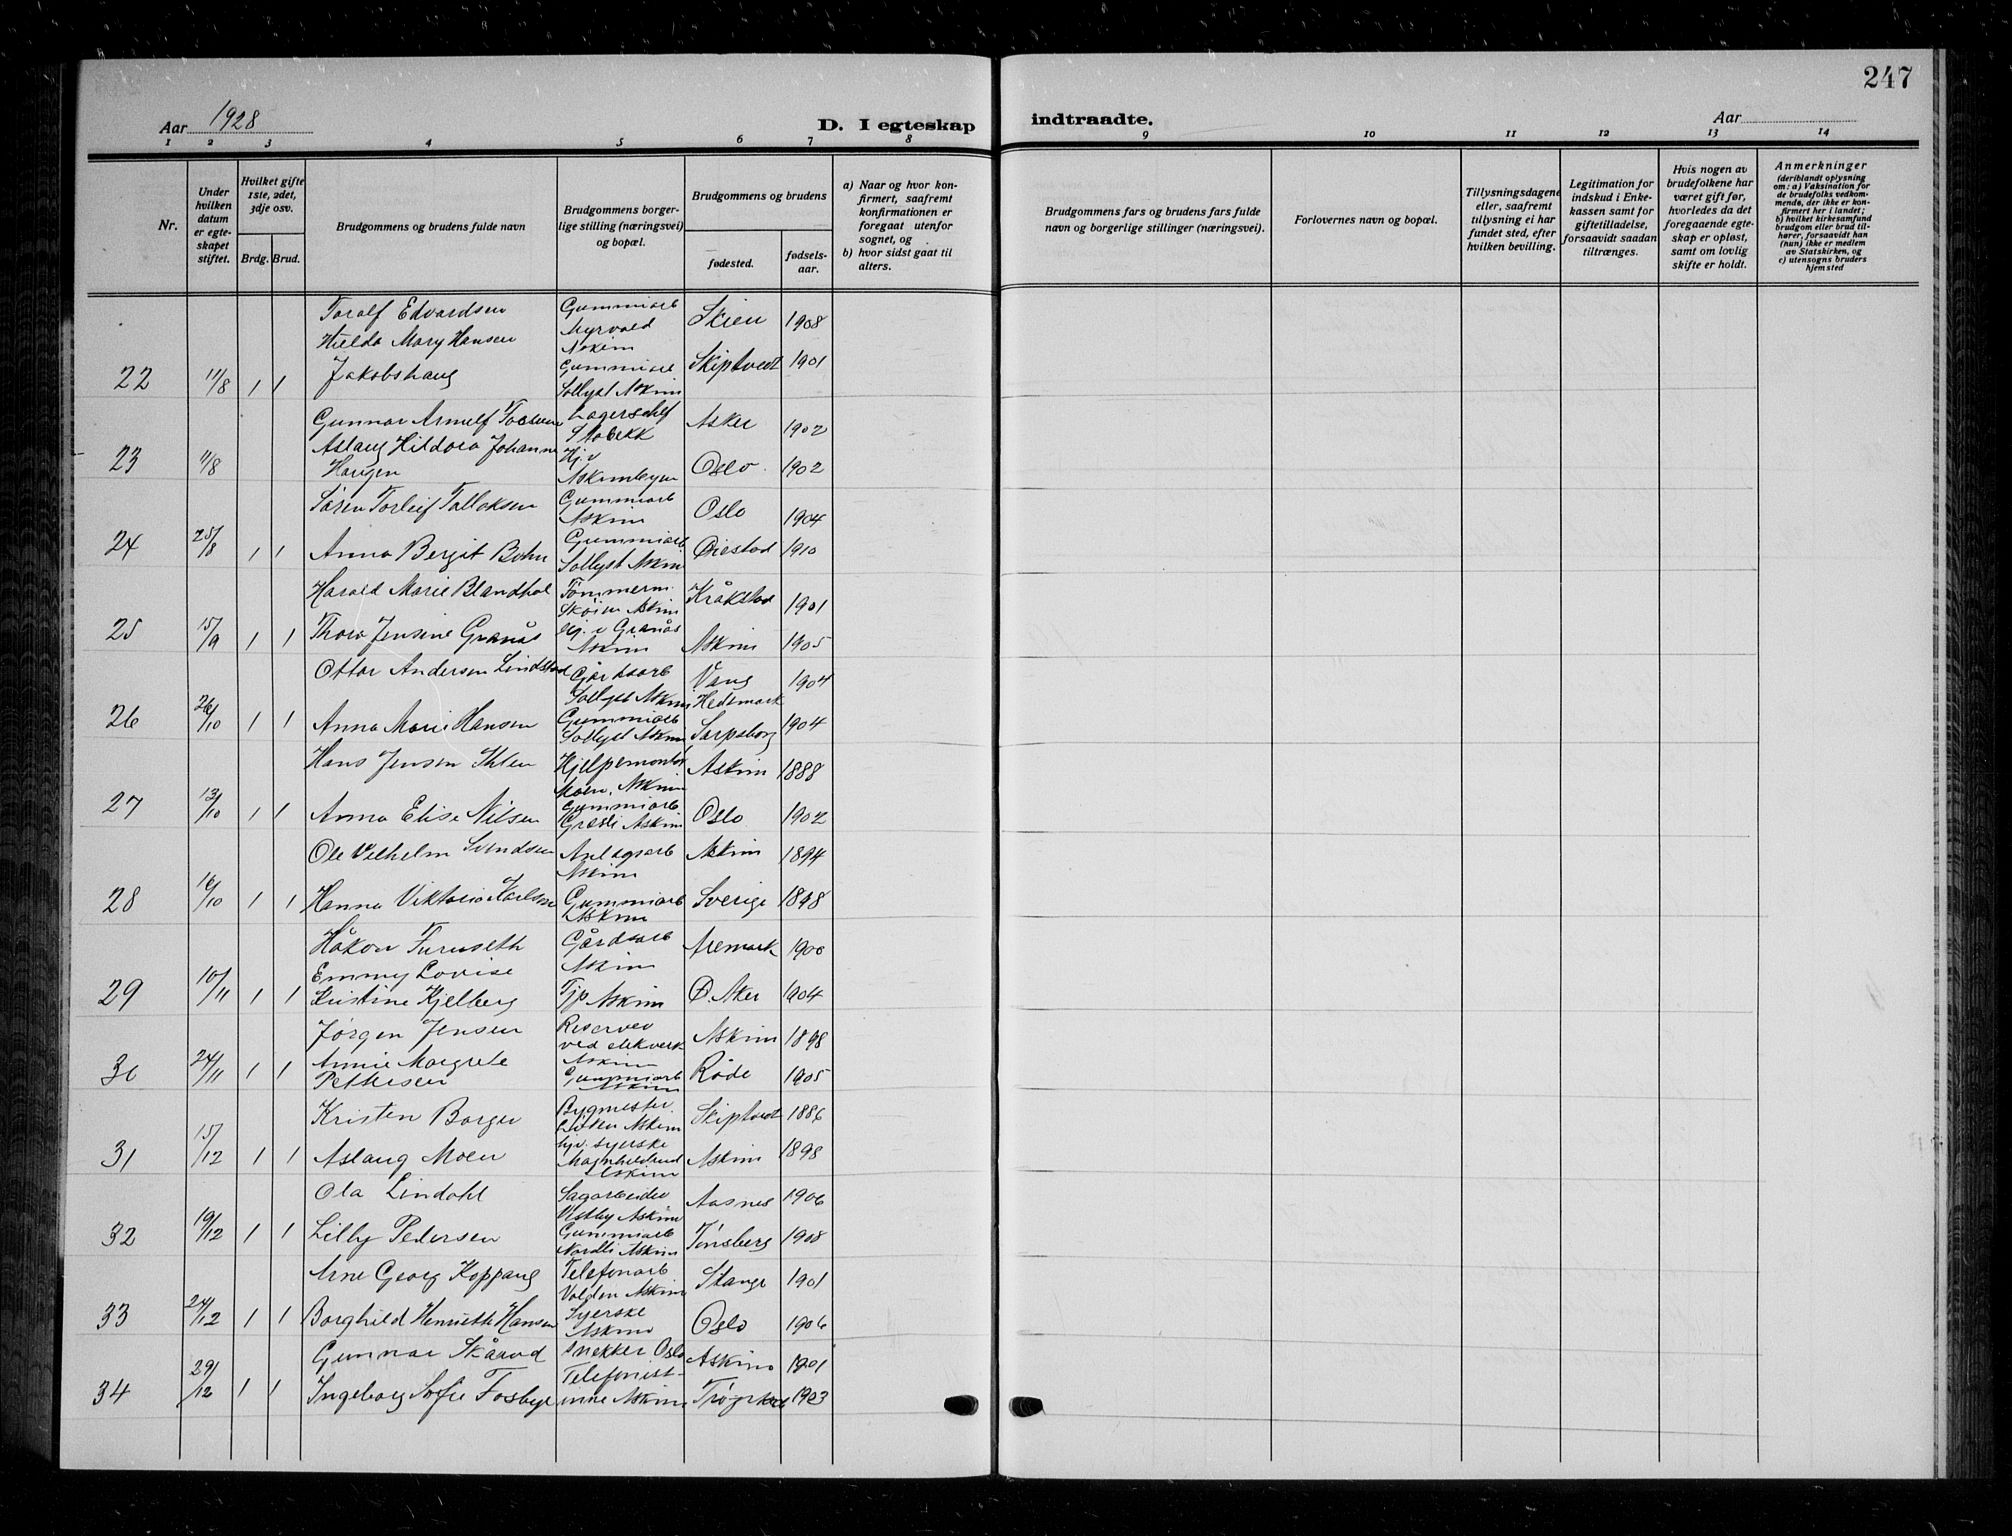 247
Aar 1928
D. I egteskap indtraadte.
Aar
1 2 3 4 5 6 7 8 9 10 11 12 13 14
Nr.
Under hvilken datum er egteskapet stiftet.
Hvilket gifte 1ste, 2det, 3dje osv.
Brdg. Brud.
Brudgommens og brudens fulde navn
Brudgommens borgerlige stilling (næringsvei) og bopæl.
Brudgommens og brudens
fødested.
fødselsaar.
a) Naar og hvor konfirmert, saafremt konfirmationen er foregaat utenfor sognet, og
b) hvor sidst gaat til alters.
Brudgommens fars og brudens fars fulde navn og borgerlige stillinger (næringsvei).
Forlovernes navn og bopæl.
Tillysningsdagene eller, saafremt tillysning ei har fundet sted, efter hvilken bevilling.
Legitimation for indskud i Enkekassen samt for giftetilladelse, forsaavidt saadan tiltrænges.
Hvis nogen av brudefolkene har været gift før, hvorledes da det foregaaende egteskap er opløst, samt om lovlig skifte er holdt.
Anmerkninger (deriblandt oplysning om: a) Vaksination for de brudefolks vedkommende, der ikke er konfirmert her i landet; b) hvilket kirkesamfund brudgom eller brud tilhører, forsaavidt han (hun) ikke er medlem av Statskirken, og c) utensogns bruders hjemsted
Toralf Edvardsen Gummiarb Myrvold Askim Skien 1908
Hilda Mary Hansen
22 11/8 1 1 Jakobshaug Gummiarb Sollyst Askim Skiptvedt 1901
Gunnar Arnulf Lagerschef Stabekk Asker 1902
Aslaug Hildora Johanne
23 11/8 Haugen Hj. v Askimbyen Oslo 1902
Søren Torleif Tallaksen Gummiarb Askim Oslo 1904
24 25/8 1 1 Anna Bergit Bohn Gummiarb. Sollyst Askim Øiestad 1910
Harald Marie Blandhol Tømmerm. Skøien Askim Kråkstad 1901
25 15/9 1 1 Thora Jensine Granås Hj. v Granås Askim Askim 1905
Ottar Andersen Lindstad Gårdsarb Sollyst Askim Vang Hedemark 1904
26 26/10 1 1 Anna Marie Hansen Gummiarb Sollyst Askim Sarpsborg 1904
Hans Jensen Ihlen Hjelpemontør Moen, Askim Askim 1888
27 13/10 1 1 Anna Elise Nilsen Gummiarb Græsli Askim Oslo 1902
Ole Vilhelm Svendsen Anlegsarb Askim Askim 1894
28 16/10 1 1 Hanna Viktoria Karlsson Gummiarb Askim Sverige 1898
Håkon Furuseth Gårdsarb Askim Aremark 1900
Emmy Lovise
29 10/11 1 1 Kristine Kjelberg Tjp Askim Ø. Aker 1904
Jørgen Jensen Reserve ved elekverk Askim Askim 1898
Annie Margrete
30 24/11 1 1 Pettersen Gummiarb Askim Råde 1905
Kristen Borger Bygmester Askim Skiptvedt 1886
31 15/12 1 1 Aslaug Moen hjv. syerske Magnhildrud Askim Askim 1898
Ola Lindahl Sagarbeider Vestby Askim Aasnes 1906
32 19/12 1 1 Lilly Pedersen Gummiarb Nordli Askim Tønsberg 1908
Arne Georg Koppang Telefonarb Volden Askim Stange 1901
33 24/12 1 1 Borghild Henriette Hansen Syerske Askim Oslo 1906
Gunnar Skåarud snekker Oslo Askim 1901
34 29/12 1 1 Ingeborg Sofie Fosbye Telefonistinne Askim Trøgstad 1903